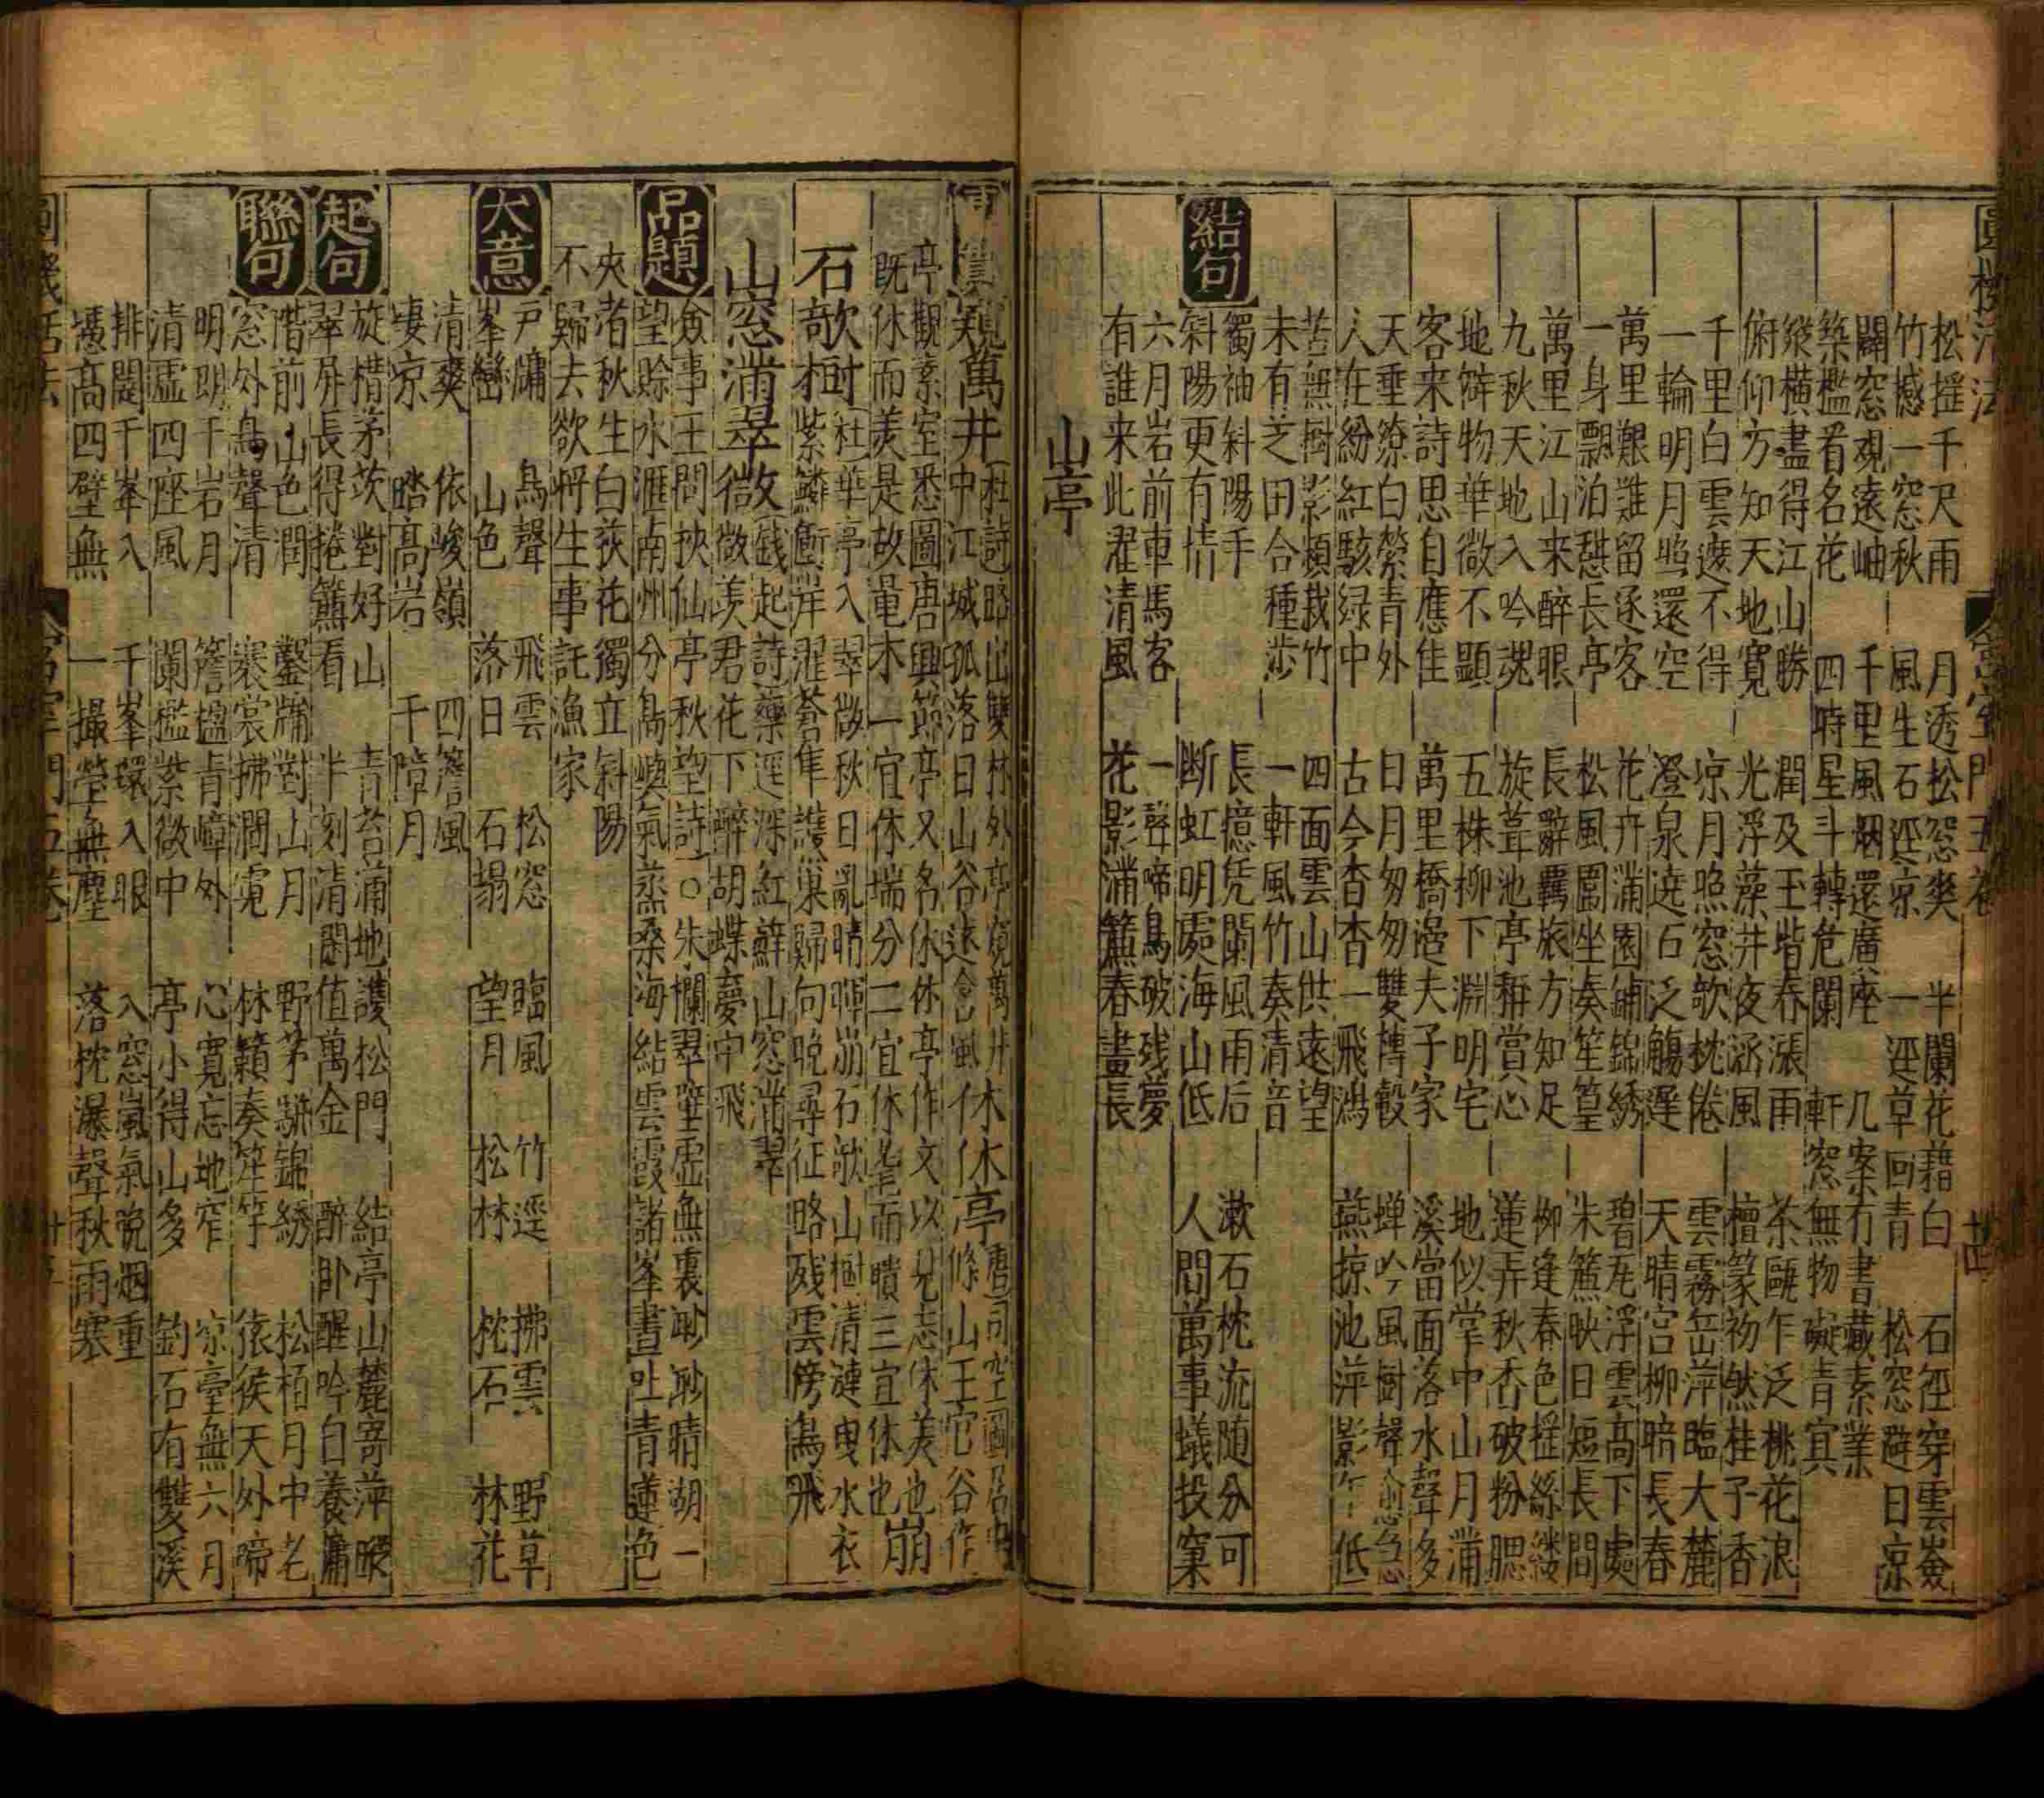 圓機活法
宮室門五卷
廿四
松摇千尺雨 月透松窓爽 半闌花藉白 石徑穿雲嶮
竹撼一窓秋 風生石逕凉 一逕草回青 松窓避日凉
闢窓覘遠岫 千里風烟還廣座 几案有書藏素業
築檻看名花 四時星斗轉危闌 軒窓無物礙青冥
縱横盡得江山勝 潤及玉堦春漲雨 茶甌乍泛桃花浪
俯仰方知天地寬 光浮藻井夜涵風 檀篆初然桂子香
千里白雲遮不得 凉月照窓欹枕倦 雲霧岳萍臨大麓
一輪明月照還空 澄泉遶石泛觴遲 天晴宫柳暗長春
萬里艱難留逐客 花卉滿園鋪錦綉 碧瓦浮雲高下處
一身飄泊愁長亭 松風圍坐奏笙篁 朱簾映日短長間
萬里江山来醉眼 長辭羇旅方知足 柳逢春色摇絲縷
九秋天地入吟魂 旋葺池亭稱賞心 蓮弄秋香破粉腮
地僻物華微不顕 五株柳下淵明宅 地似掌中山月滿
客来詩思自應佳 萬里橋邊夫子家 溪當面落水聲多
天垂繚白縈青外 日月匆匆雙轉轂 蝉吟風樹聲愈急
人在紛紅駭緑中 古今杳杳一飛鴻 燕掠池萍影乍低
苦無樹影頻栽竹 四面雲山供遠望
未有芝田合種莎 一軒風竹奏清音
獨袖斜陽手 長憶凭闌風雨后 漱石枕流随分可
結句
斜陽更有情 断虹明處海山低 人間萬事蟻投窠
六月岩前車馬客 一聲啼鳥破残夢
有誰来此濯清風 花影滿簾春晝長
山亭
窺萬井 杜詩略出雙林外亭窺萬井
中江城孤落日山谷遠含風 休休亭 唐司空圖居中
條山王官谷作
亭觀素室悉圖唐興節亭又名休休亭作文以見志休美也
既休而美是故量木一宜休揣分二宜休耄而聵三宜休也 崩
石欹樹 杜華亭入翠微秋日亂晴暉崩石欹山樹清漣曳水衣
紫鱗衝岸濯蒼隼護巢歸向晩尋征略残雲傍鳥飛
山窓滿翠微 戲起詩藥逕深紅蘚山窓滿翠
微羡君花下醉胡蝶夢中飛
品題
僉事王問挾仙亭秋望詩○朱欄翠壁虛無裏渺渺晴湖一
望賒水滙南州分島嶼氣蒸桑海結雲霞諸峯晝吐青蓮色
夾渚秋生白荻花獨立斜陽
不歸去欲將生事託漁家
大意
戸牖 鳥聲 飛雲 松窓 臨風 竹逕 拂雲 野草
峯巒 山色 落日 石榻 望月 松林 枕石 林花
清爽 依峻嶺 四簷風
凄凉 踏高岩 千障月
起句
旋構茅茨對好山 青苔滿地護松門 結亭山麓寄萍蹤
翠屏長得捲簾看 半刻清閑值萬金 醉卧醒吟白養慵
聯句
階前山色潤 鑿牖對山月 野茅駢錦綉 松栢月中老
窓外鳥聲清 褰裳拂澗霓 林籟奏笙竽 猿猴天外啼
明明千岩月 簷楹青嶂外 心寬忘地窄 凉臺無六月
清虛四座風 闌檻紫微中 亭小得山多 釣石有雙溪
排闥千峯入 千峯環入眼 入窓嵐氣晩烟重
憑高四壁無 一撮瑩無塵 落枕瀑聲秋雨寒
圓機活法
宮室門五卷
廿五